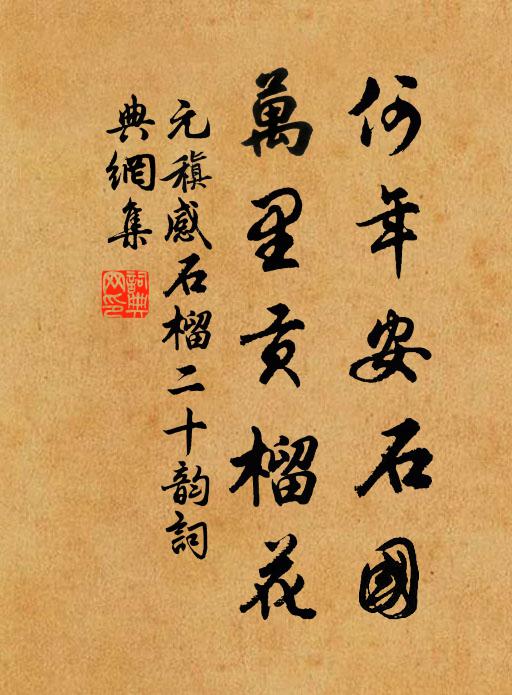 何年安石國
萬里貢榴花
元稹感石榴二十韵詞
典網集
詞典網印